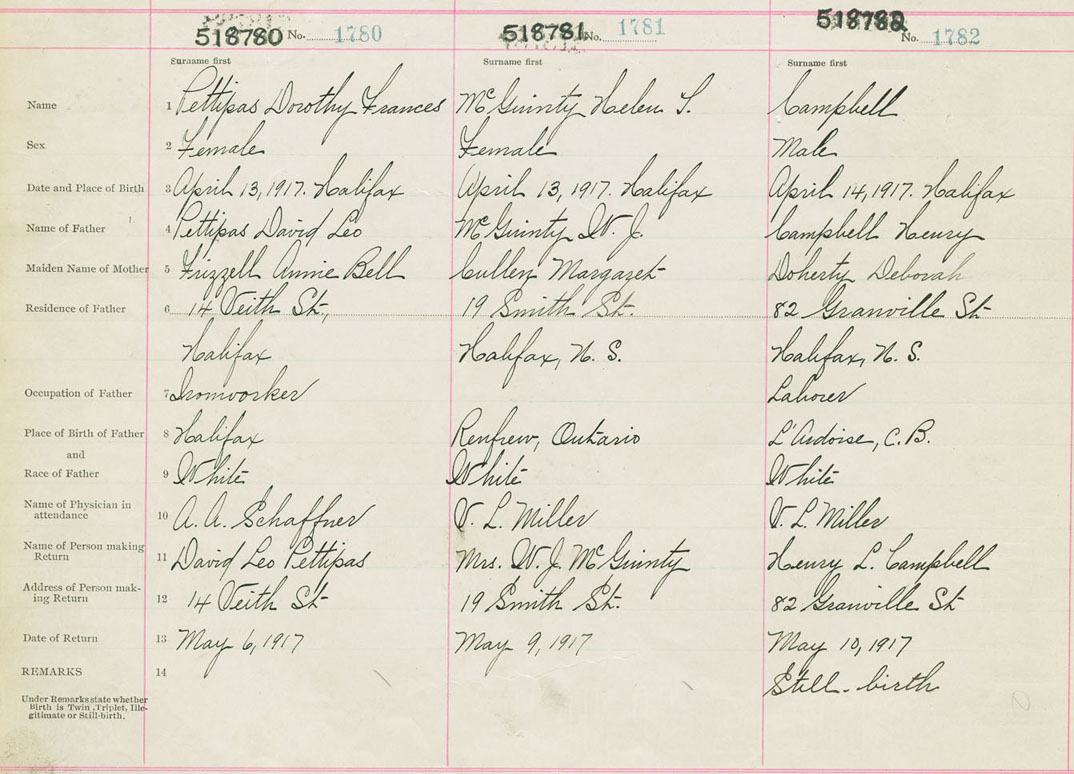 518780 No. 1780 518781 No. 1781 518782 No. 1782
Surname first Surname first Surname first
Name 1 Pettipas Dorothy Frances McGuinty Helen T. Campbell
Sex 2 Female Female Male
Date and Place of Birth 3 April 13, 1917. Halifax April 13, 1917. Halifax April 14, 1917. Halifax
Name of Father 4 Pettipas David Leo McGuinty W. J. Campbell Henry
Maiden Name of Mother 5 Frizzell Annie Bell Cullen Margaret Doherty Deborah
Residence of Father 6 14 Veith St., 19 Smith St. 82 Granville St
Halifax Halifax, N. S. Halifax, N. S.
Occupation of Father 7 Ironworker Laborer
Place of Birth of Father 8 Halifax Renfrew, Ontario L'Ardoise, C.B.
and
Race of Father 9 White White White
Name of Physician in
attendance 10 A. A. Schaffner V. L. Miller V. L. Miller
Name of Person making
Return 11 David Leo Pettipas Mrs. W. J. McGuinty Henry L. Campbell
Address of Person mak-
ing Return 12 14 Veith St 19 Smith St. 82 Granville St
Date of Return 13 May 6, 1917 May 9, 1917 May 10, 1917
REMARKS 14 Still-birth
Under Remarks state whether
Birth is Twin, Triplet, Ille-
gitimate or Still-birth.